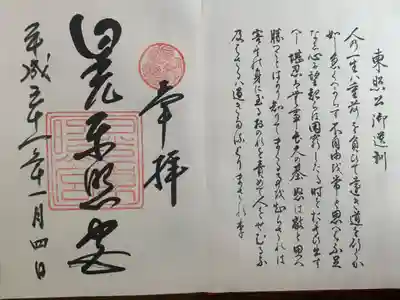 東照公御遺訓
人の一生は重荷を負ひて遠き道を行くか
如し急くへからす不自由を常と思へは不足
なし心に望起らは困窮したる時を思ひ出す
へし堪忍は無事長久の基怒は敵と思へ
勝つことはかり知りてまくる事を知らされは
害其の身に至るおのれを責めて人をせむるな
及はさるは過きたるよりまされり
奉拝
日光東照宮
平成二十一年十一月四日